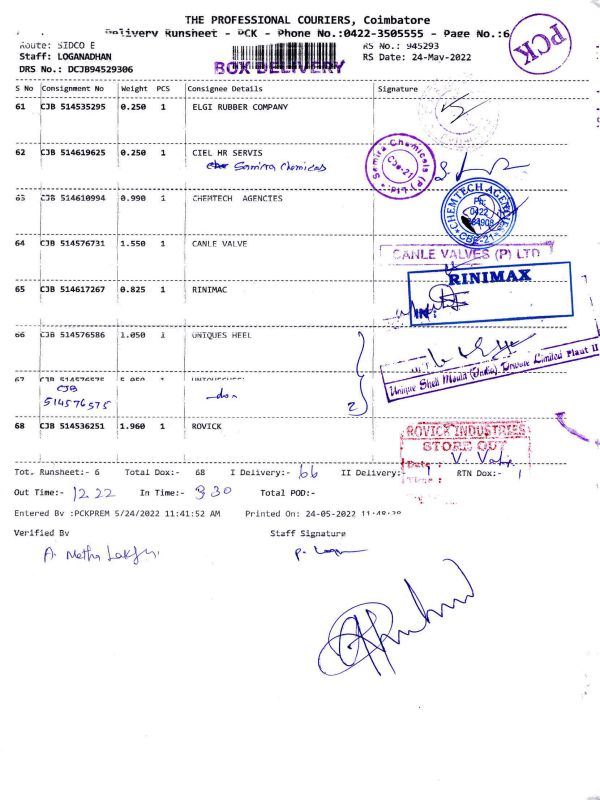 THE PROFESSIONAL COURIERS, Coimbatore
Delivery Runsheet - PCK - Phone No.:0422-3505555 - Page No.:6
PCK
Route: SIDCO E
RS No.: 945293
Staff: LOGANADHAN
RS Date: 24-May-2022
DRS No.: DCJB94529306
BOX DELIVERY
S No Consignment No Weight PCS Consignee Details Signature
61 CJB 514535295 0.250 1 ELGI RUBBER COMPANY
62 CJB 514619625 0.250 1 CIEL HR SERVIS
Samira Chemicals
Samira Chemicals (P) Ltd. Cbe-21
63 CJB 514610994 0.990 1 CHEMTECH AGENCIES
CHEMTECH AGENCIES PH: 0422 CBE-21
64 CJB 514576731 1.550 1 CANLE VALVE
CANLE VALVES (P) LTD
65 CJB 514617267 0.825 1 RINIMAC
RINIMAX
66 CJB 514576586 1.050 1 UNIQUES HEEL
Unique Shell Mould (India) Private Limited Plant II
67 CJB 514576575 5.050 1
CJB
514576575
2
68 CJB 514536251 1.960 1 ROVICK
ROVICK INDUSTRIES
STORE OUT
Date :
Time :
Tot. Runsheet:- 6 Total Dox:- 68 I Delivery:- 66 II Delivery:- 1 RTN Dox:- 1
Out Time:- 12.22 In Time:- 3 30 Total POD:-
Entered By :PCKPREM 5/24/2022 11:41:52 AM Printed On: 24-05-2022
Verified By Staff Signature